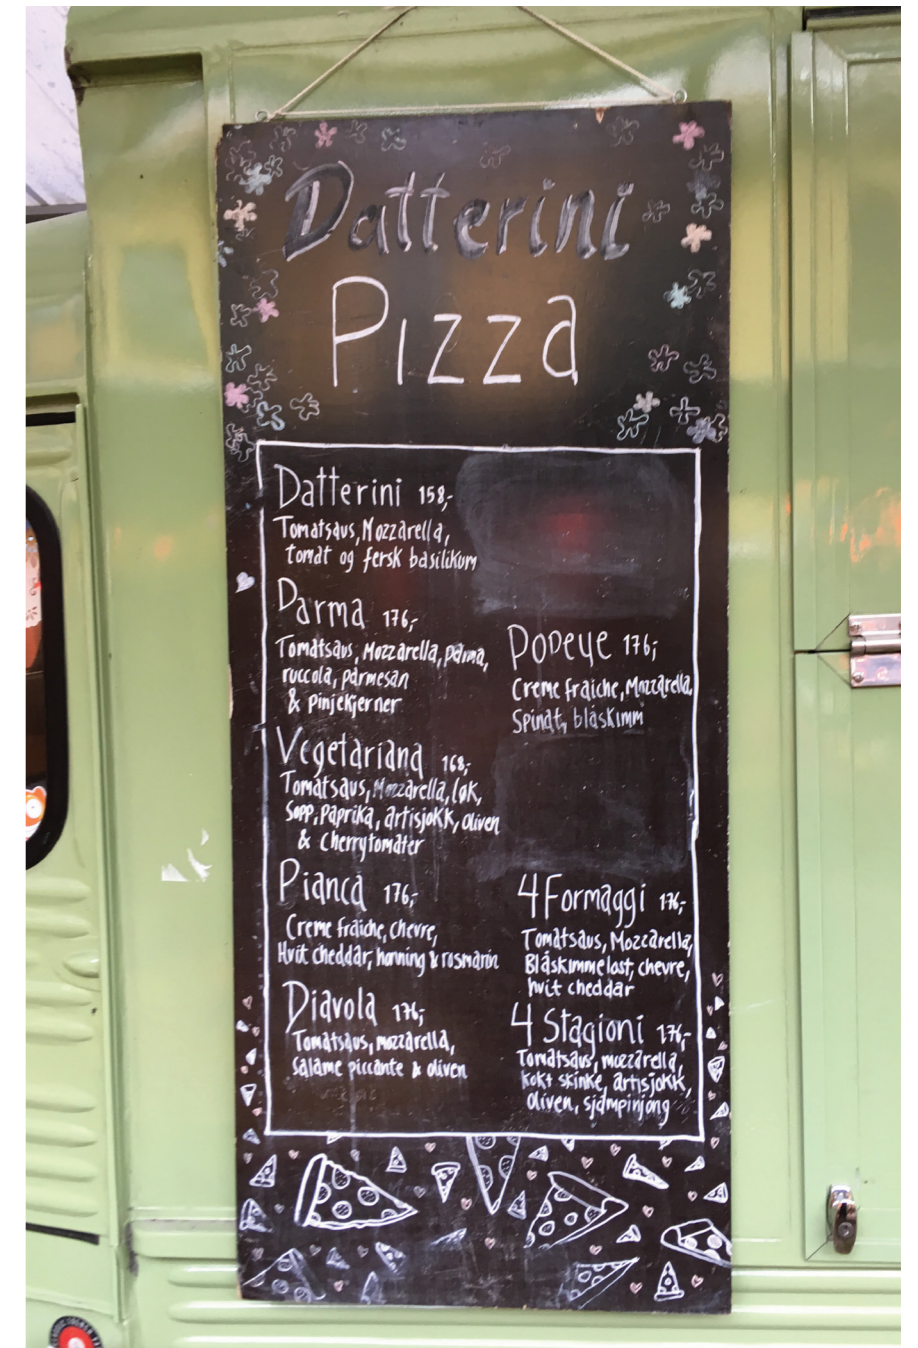 Datterini
Pizza
Datterini 158,-
Tomatsaus, Mozzarella,
tomat og fersk basilikum
Parma 176,-
Tomatsaus, Mozzarella, parma,
ruccola, parmesan
& pinjekjerner
Vegetariana 168,-
Tomatsaus, Mozzarella, løk,
Sopp, paprika, artisjokk, oliven
& Cherrytomater
Pianca 176,-
Creme fraiche, chevre,
Hvit cheddar, honning & rosmarin
Diavola 176,-
Tomatsaus, mozzarella,
Salame piccante & oliven
Popeye 176,-
Creme fraiche, Mozzarella,
Spinat, blåskimm
4 Formaggi 176,-
Tomatsaus, Mozzarella,
Blåskimmelost, chevre,
hvit cheddar
4 Stagioni 176,-
Tomatsaus, mozzarella,
kokt skinke, artisjokk,
Oliven, sjampinjong